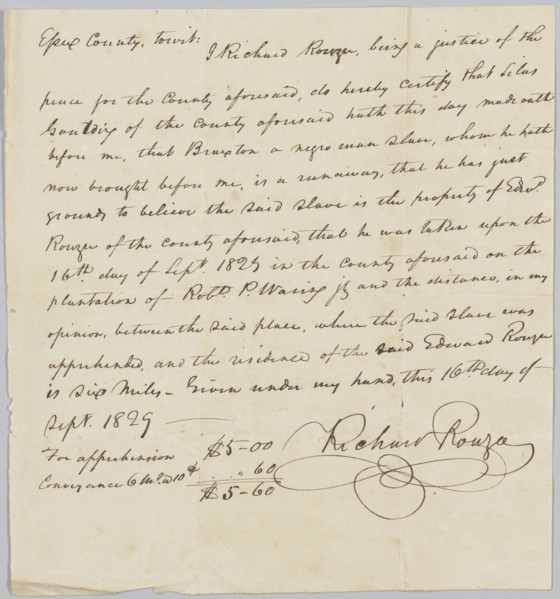 Essex County, towit:
I Richard Rouze, being a justice of the
peace for the County aforesaid, do hereby certify that Silas
Gouldin of the county aforesaid hath this day made oath
before me, that Braxton a negro man slave, whom he hath
now brought before me, is a runaway, that he has just
grounds to believe the said slave is the property of Edwd.
Rouze of the county aforesaid, that he was taken upon the
16th day of Sept. 1829 in the county aforesaid on the
plantation of Robt. P. Waring and the distance, in my
opinion, between the said place, where the said slave was
apprehended, and the residence of the said Edward Rouze
is six miles - Given under my hand, this 16th day of
Sept. 1829
For apprehension $5-00
Conveyance 6 Ms. a 10¢ .. .. " 60
$5-60
Richard Rouze